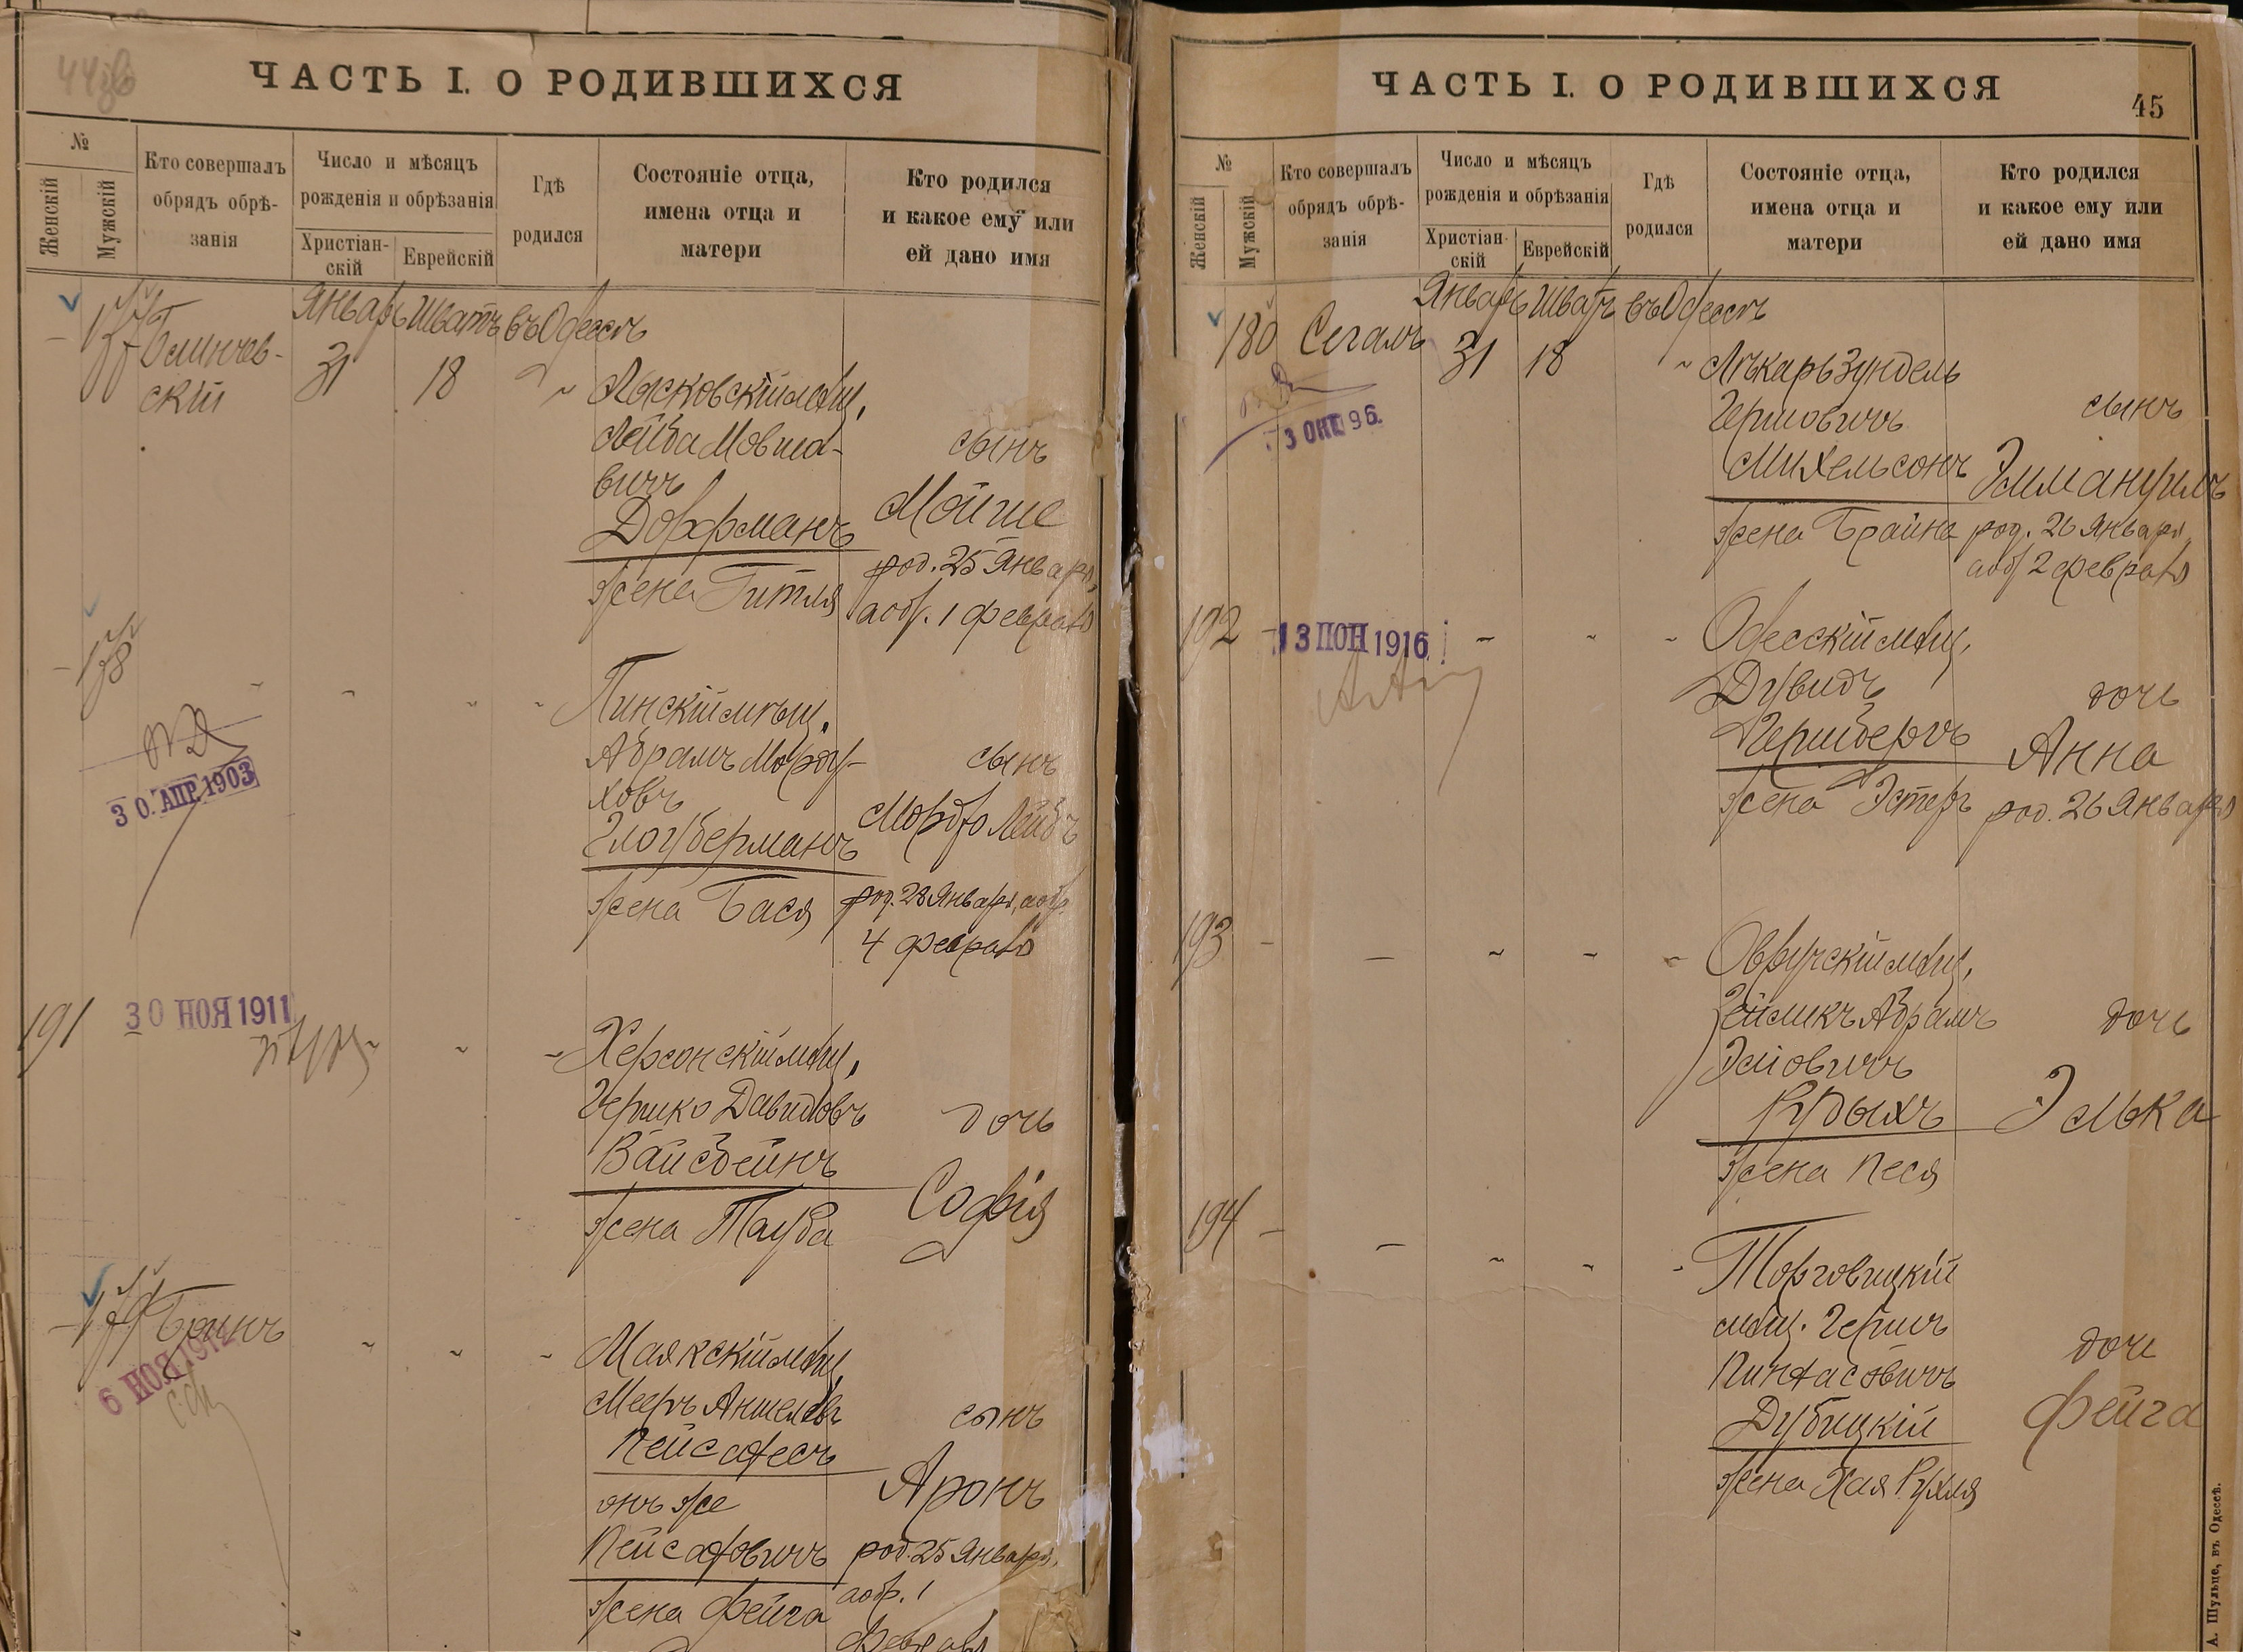 44об
ЧАСТЬ I. О РОДИВШИХСЯ
№
Женскій
Мужскій
Кто совершалъ
обрядъ обрѣ-
занія
Число и мѣсяцъ
рожденія и обрѣзанія
Христіан-
скій
Еврейскій
Гдѣ
родился
Состояніе отца,
имена отца и
матери
Кто родился
и какое ему или
ей дано имя
177
скій
Январь Шватъ въ Одессѣ
31 18
Лысковскій мѣщ.
Лейба Мовша-
вичъ
Дорфманъ
жена Гитля
сынъ
Мойше
род. 25 Января,
а обр. 1 февраля
178
30. АПР. 1903
Пинскій мѣщ.
Абрамъ Морду-
ховъ
Глоуберманъ
жена Бася
сынъ
Мордко Лейбъ
род. 28 Января, а обр.
4 февраля
191
30 НОЯ 1911
Херсонскій мѣщ.
Гершко Давидовъ
Вайсбейнъ
жена Тауба
дочь
Софія
179
Бринъ
6 НОЯ 1912
Маякскій мѣщ.
Мееръ Аншелевъ
Пейсахесъ
онъ же
Пейсаховичъ
жена Фейга
сынъ
Аронъ
род. 25 Января,
а обр. 1
февраля
ЧАСТЬ I. О РОДИВШИХСЯ
45
№
Женскій
Мужскій
Кто совершалъ
обрядъ обрѣ-
занія
Число и мѣсяцъ
рожденія и обрѣзанія
Христіан-
скій
Еврейскій
Гдѣ
родился
Состояніе отца,
имена отца и
матери
Кто родился
и какое ему или
ей дано имя
180
Сегалъ
Январь Шватъ въ Одессѣ
31 18
3 ОКТ 96.
Лѣкарь Зундель
Гершовичъ
Михельсонъ
жена Брайна
сынъ
Эммануилъ
род. 26 Января,
а обр 2 февраля
192
13 ІЮН 1916
Одесскій мѣщ.
Дувидъ
Гершбергъ
жена Эстеръ
дочь
Анна
род. 26 Января
193
Овручскій мѣщ.
Зейликъ Абрамъ
Эліовичъ
Рудыхъ
жена Песя
дочь
Элька
194
Торговицкій
мѣщ. Гершъ
Пинхасовичъ
Дубицкій
жена Хая Рухля
дочь
Фейга
А. Шульце, въ Одессѣ.